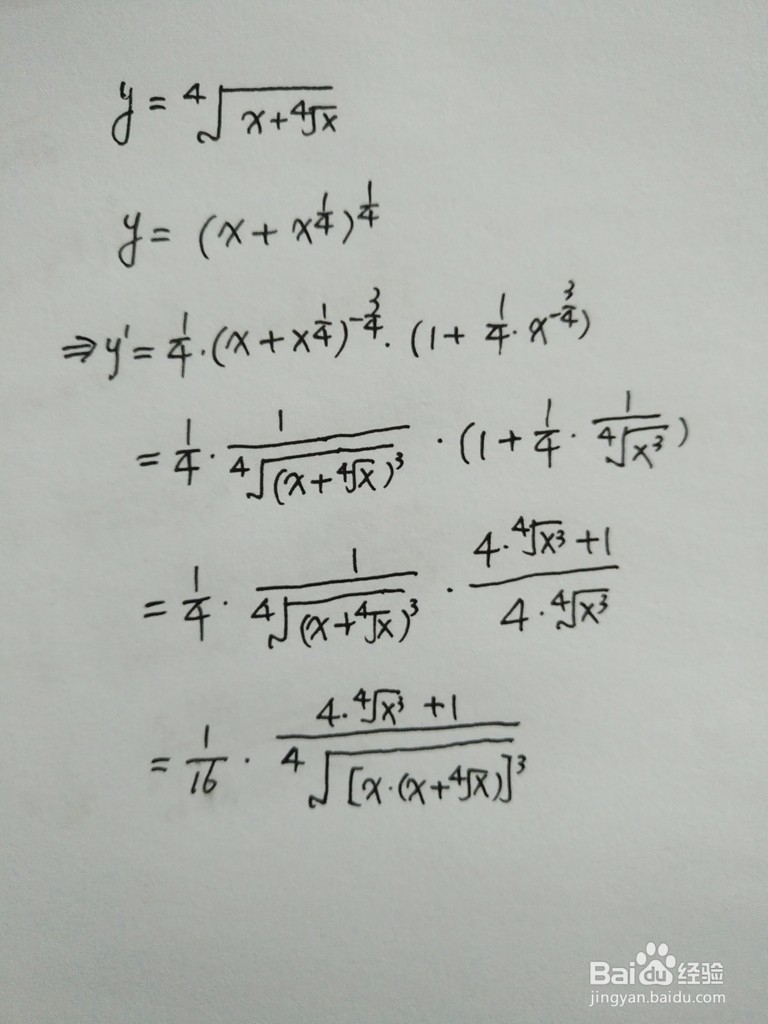 y = ∜(x+∜x)
y = (x + x^(1/4))^(1/4)
⇒ y' = 1/4 · (x + x^(1/4))^(-3/4) · (1 + 1/4 · x^(-3/4))
= 1/4 · 1/∜((x+∜x)³) · (1 + 1/4 · 1/∜(x³))
= 1/4 · 1/∜((x+∜x)³) · (4·∜(x³) + 1)/(4·∜(x³))
= 1/16 · (4·∜(x³) + 1)/∜([x·(x+∜x)]³)
Bai du 经验
jingyan.baidu.com